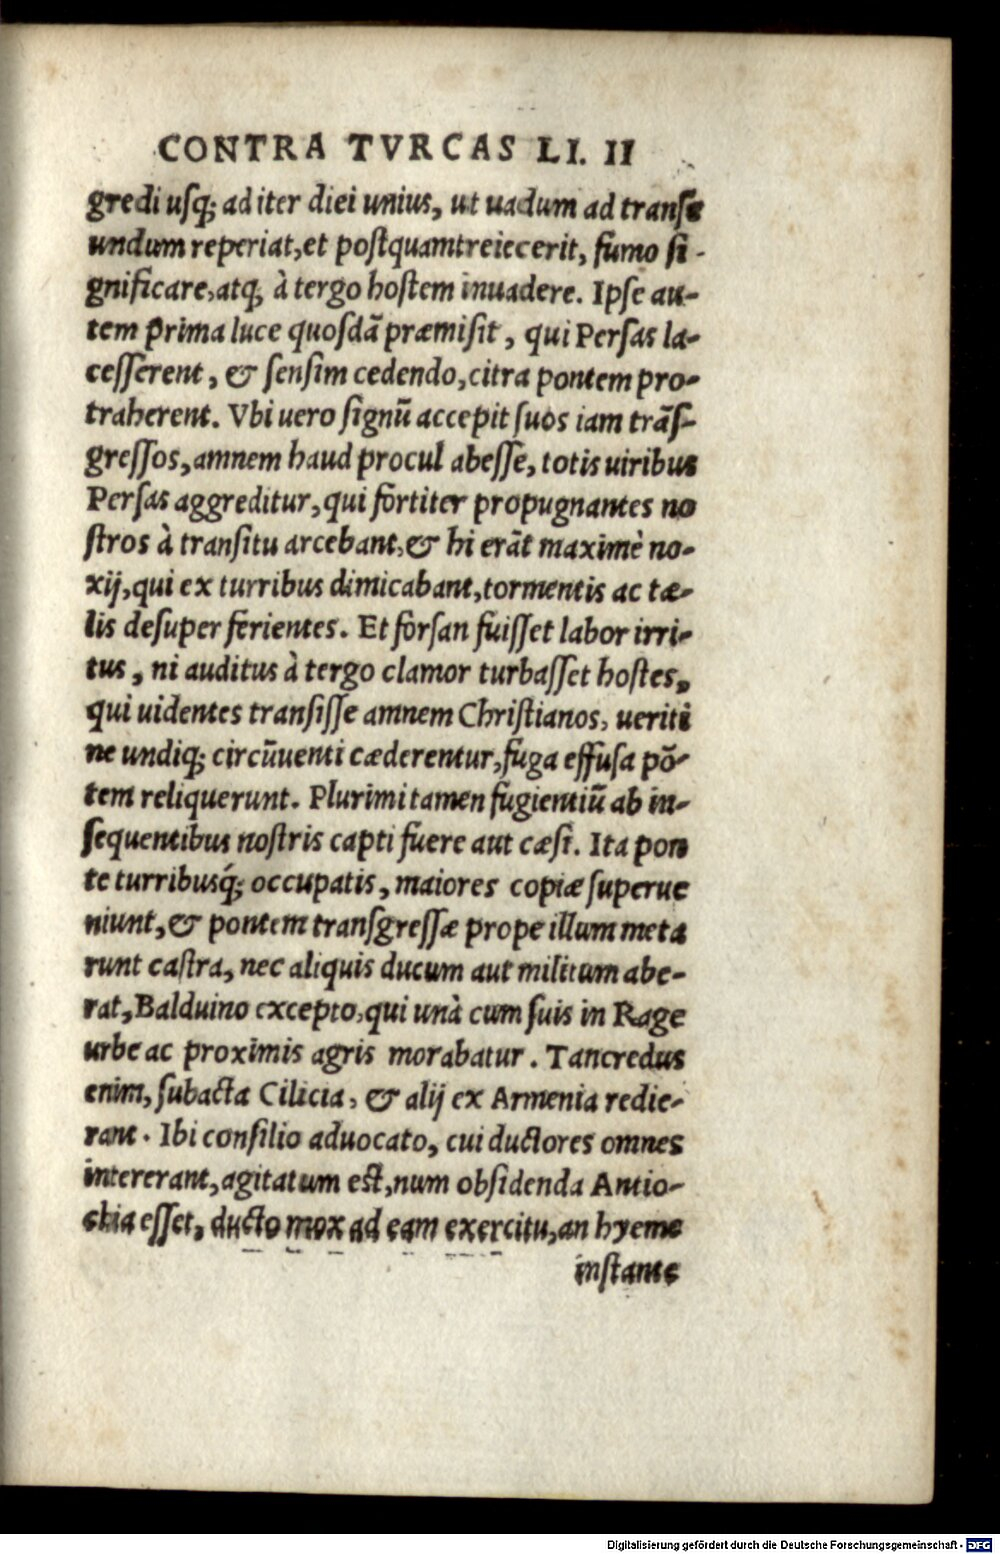 CONTRA TVRCAS LI. II
gredi usq; ad iter diei unius, ut uadum ad transe
undum reperiat, et postquamtreiecerit, fumo si-
gnificare, atq; à tergo hostem inuadere. Ipse au-
tem prima luce quosdā præmisit, qui Persas la-
cesserent, & sensim cedendo, citra pontem pro-
traherent. Vbi uero signū accepit suos iam trās-
gressos, amnem haud procul abesse, totis uiribus
Persas aggreditur, qui fortiter propugnantes no
stros à transitu arcebant, & hi erāt maximè no-
xij, qui ex turribus dimicabant, tormentis ac tæ-
lis desuper ferientes. Et forsan fuisset labor irri-
tus, ni auditus à tergo clamor turbasset hostes,
qui uidentes transisse amnem Christianos, ueriti
ne undiq; circūuenti cæderentur, fuga effusa pō-
tem reliquerunt. Plurimi tamen fugientiū ab in-
sequentibus nostris capti fuere aut cæsi. Ita pon
te turribusq́; occupatis, maiores copiæ superue
niunt, & pontem transgressæ prope illum meta
runt castra, nec aliquis ducum aut militum abe-
rat, Balduino excepto, qui unà cum suis in Rage
urbe ac proximis agris morabatur. Tancredus
enim, subacta Cilicia, & alij ex Armenia redie-
rant. Ibi consilio aduocato, cui ductores omnes
intererant, agitatum est, num obsidenda Antio-
chia esset, ducto mox ad eam exercitu, an hyeme
instante
Digitalisierung gefördert durch die Deutsche Forschungsgemeinschaft - DFG